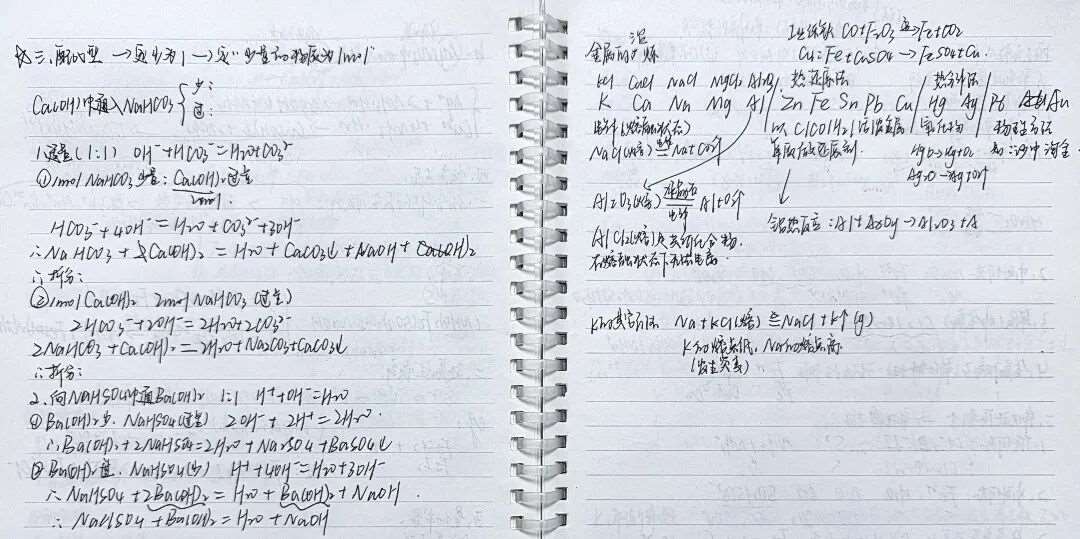 三、配比型 → 定少为1 → 定"少量的物质为1mol"
Ca(OH)₂中通入NaHCO₃ { 少:
过:
1.过量(1:1) OH⁻+HCO₃⁻=H₂O+CO₃²⁻
①1mol NaHCO₃少量: Ca(OH)₂过量
2mol.
HCO₃⁻+4OH⁻=H₂O+CO₃²⁻+3OH⁻
∴NaHCO₃+2Ca(OH)₂=H₂O+CaCO₃↓+NaOH+Ca(OH)₂
∴拆分:
②1mol Ca(OH)₂ 2mol NaHCO₃(过量)
2HCO₃⁻+2OH⁻=2H₂O+2CO₃²⁻
2NaHCO₃+Ca(OH)₂=2H₂O+Na₂CO₃+CaCO₃↓
∴拆分:
2.向NaHSO₄中通Ba(OH)₂ 1:1 H⁺+OH⁻=H₂O
①Ba(OH)₂少. NaHSO₄(过量) 2OH⁻+2H⁺=2H₂O
∴Ba(OH)₂+2NaHSO₄=2H₂O+Na₂SO₄+BaSO₄↓
②Ba(OH)₂过. NaHSO₄(少) H⁺+4OH⁻=H₂O+3OH⁻
∴NaHSO₄+2Ba(OH)₂=H₂O+Ba(OH)₂+NaOH
∴NaHSO₄+Ba(OH)₂=H₂O+NaOH
冶
金属的炼
工业炼铁 CO+Fe₂O₃ 高温→ Fe+CO₂
Cu: Fe+CuSO₄→FeSO₄+Cu.
KCl CaCl NaCl MgCl₂ Al₂O₃ 热还原法 热分解法
K Ca Na Mg Al/ Zn Fe Sn Pb Cu/ Hg Ag/ Pt Au
电解(熔融状态) 以C/CO/H₂/活泼金属 氧化物 物理方法
NaCl(熔) 电解= Na+Cl₂↑ 单质做还原剂. HgO→Hg+O₂ 如:沙中淘金.
Ag₂O→Ag+O₂↑
Al₂O₃(熔) 冰晶石=电解 Al+O₂↑
铝热反应:Al+AxOy→Al₂O₃+A
AlCl₃(熔)为共价化合物.
在熔融状态下无法电离.
K的其它方法 Na+KCl(熔)≌NaCl+K↑(g)
K的熔点低, Na的熔点高